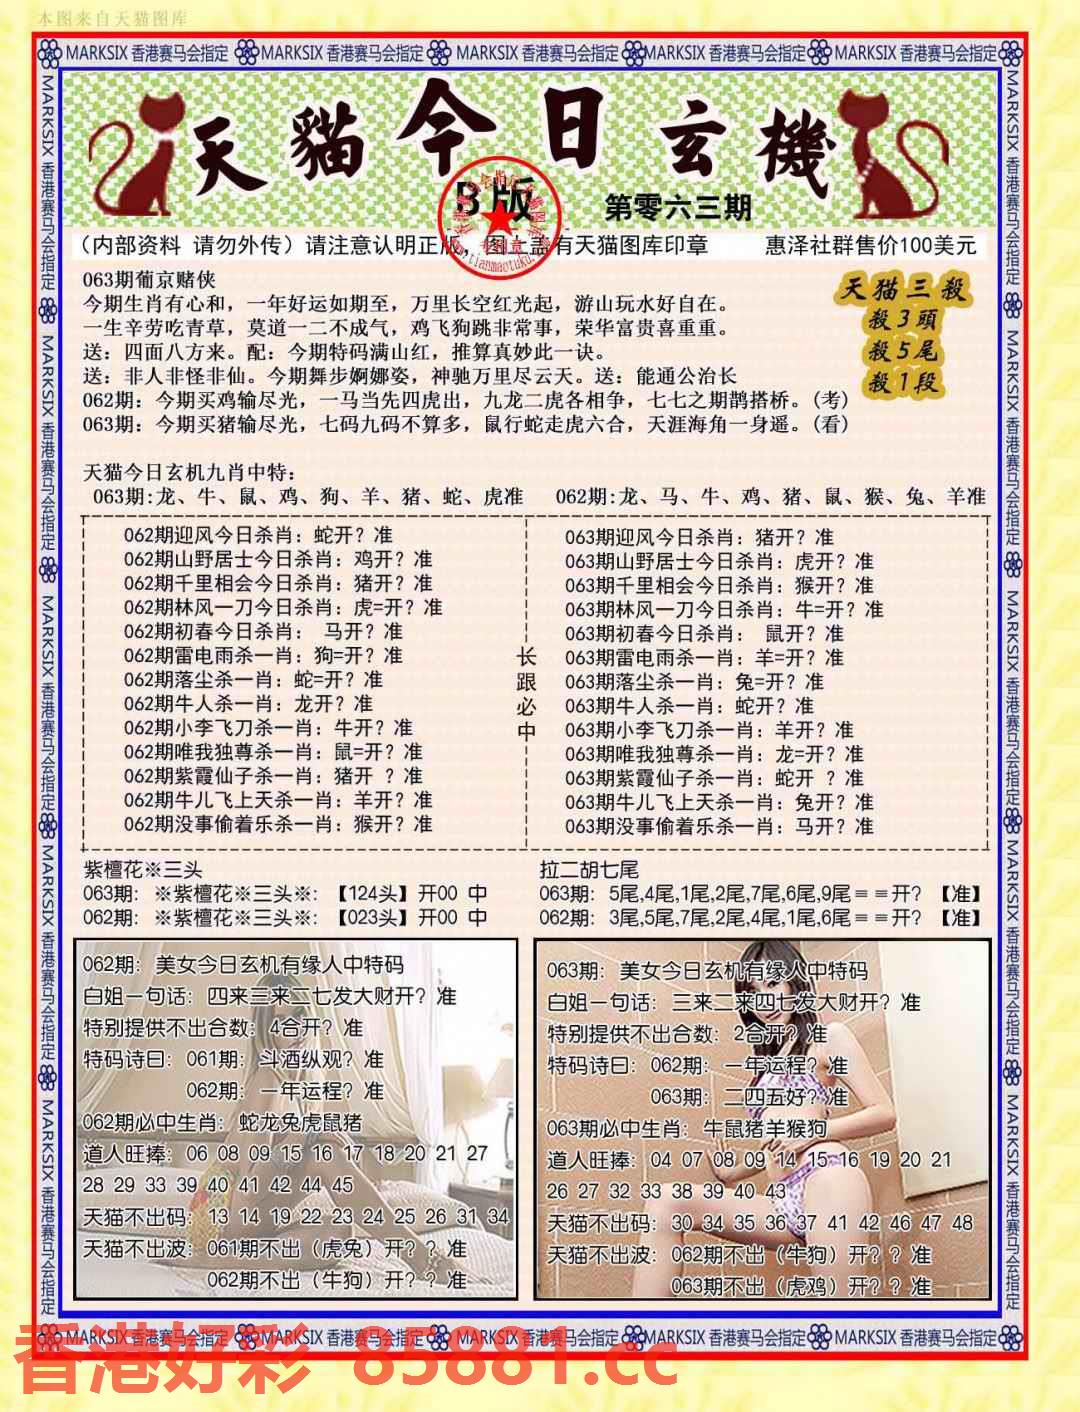 本图来自天猫图库
MARKSIX 香港赛马会指定 MARKSIX 香港赛马会指定 MARKSIX 香港赛马会指定 MARKSIX 香港赛马会指定 MARKSIX 香港赛马会指定
天貓今日玄機
B版
第零六三期
（内部资料 请勿外传）请注意认明正版，图上盖有天猫图库印章 惠泽社群售价100美元
063期葡京赌侠
今期生肖有心和，一年好运如期至，万里长空红光起，游山玩水好自在。
一生辛劳吃青草，莫道一二不成气，鸡飞狗跳非常事，荣华富贵喜重重。
送：四面八方来。配：今期特码满山红，推算真妙此一诀。
送：非人非怪非仙。今期舞步婀娜姿，神驰万里尽云天。送：能通公治长
062期：今期买鸡输尽光，一马当先四虎出，九龙二虎各相争，七七之期鹊搭桥。(考)
063期：今期买猪输尽光，七码九码不算多，鼠行蛇走虎六合，天涯海角一身遥。(看)
天猫三殺
殺3頭
殺5尾
殺1段
天猫今日玄机九肖中特：
063期:龙、牛、鼠、鸡、狗、羊、猪、蛇、虎准 062期:龙、马、牛、鸡、猪、鼠、猴、兔、羊准
062期迎风今日杀肖：蛇开？准
062期山野居士今日杀肖：鸡开？准
062期千里相会今日杀肖：猪开？准
062期林风一刀今日杀肖：虎=开？准
062期初春今日杀肖： 马开？准
062期雷电雨杀一肖：狗=开？准
062期落尘杀一肖：蛇=开？准
062期牛人杀一肖：龙开？准
062期小李飞刀杀一肖：牛开？准
062期唯我独尊杀一肖：鼠=开？准
062期紫霞仙子杀一肖：猪开 ？准
062期牛儿飞上天杀一肖：羊开？准
062期没事偷着乐杀一肖：猴开？准
长跟必中
063期迎风今日杀肖：猪开？准
063期山野居士今日杀肖：虎开？准
063期千里相会今日杀肖：猴开？准
063期林风一刀今日杀肖：牛=开？准
063期初春今日杀肖： 鼠开？准
063期雷电雨杀一肖：羊=开？准
063期落尘杀一肖：兔=开？准
063期牛人杀一肖：蛇开？准
063期小李飞刀杀一肖：羊开？准
063期唯我独尊杀一肖：龙=开？准
063期紫霞仙子杀一肖：蛇开 ？准
063期牛儿飞上天杀一肖：兔开？准
063期没事偷着乐杀一肖：马开？准
紫檀花※三头
063期：※紫檀花※三头※：【124头】开00 中
062期：※紫檀花※三头※：【023头】开00 中
拉二胡七尾
063期：5尾,4尾,1尾,2尾,7尾,6尾,9尾＝＝开？【准】
062期：3尾,5尾,7尾,2尾,4尾,1尾,6尾＝＝开？【准】
062期：美女今日玄机有缘人中特码
白姐一句话：四来三来二七发大财开？准
特别提供不出合数：4合开？准
特码诗曰：061期：斗酒纵观？准
062期：一年运程？准
062期必中生肖：蛇龙兔虎鼠猪
道人旺捧：06 08 09 15 16 17 18 20 21 27
28 29 33 39 40 41 42 44 45
天猫不出码：13 14 19 22 23 24 25 26 31 34
天猫不出波：061期不出（虎兔）开？？准
062期不出（牛狗）开？？准
063期：美女今日玄机有缘人中特码
白姐一句话：三来二来四七发大财开？准
特别提供不出合数：2合开？准
特码诗曰：062期：一年运程？准
063期：二四五好？准
063期必中生肖：牛鼠猪羊猴狗
道人旺捧：04 07 08 09 14 15 16 19 20 21
26 27 32 33 38 39 40 43
天猫不出码：30 34 35 36 37 41 42 46 47 48
天猫不出波：062期不出（牛狗）开？？准
063期不出（虎鸡）开？？准
MARKSIX 香港赛马会指定 MARKSIX 香港赛马会指定 MARKSIX 香港赛马会指定 MARKSIX 香港赛马会指定 MARKSIX 香港赛马会指定
香港好彩 85881.cc